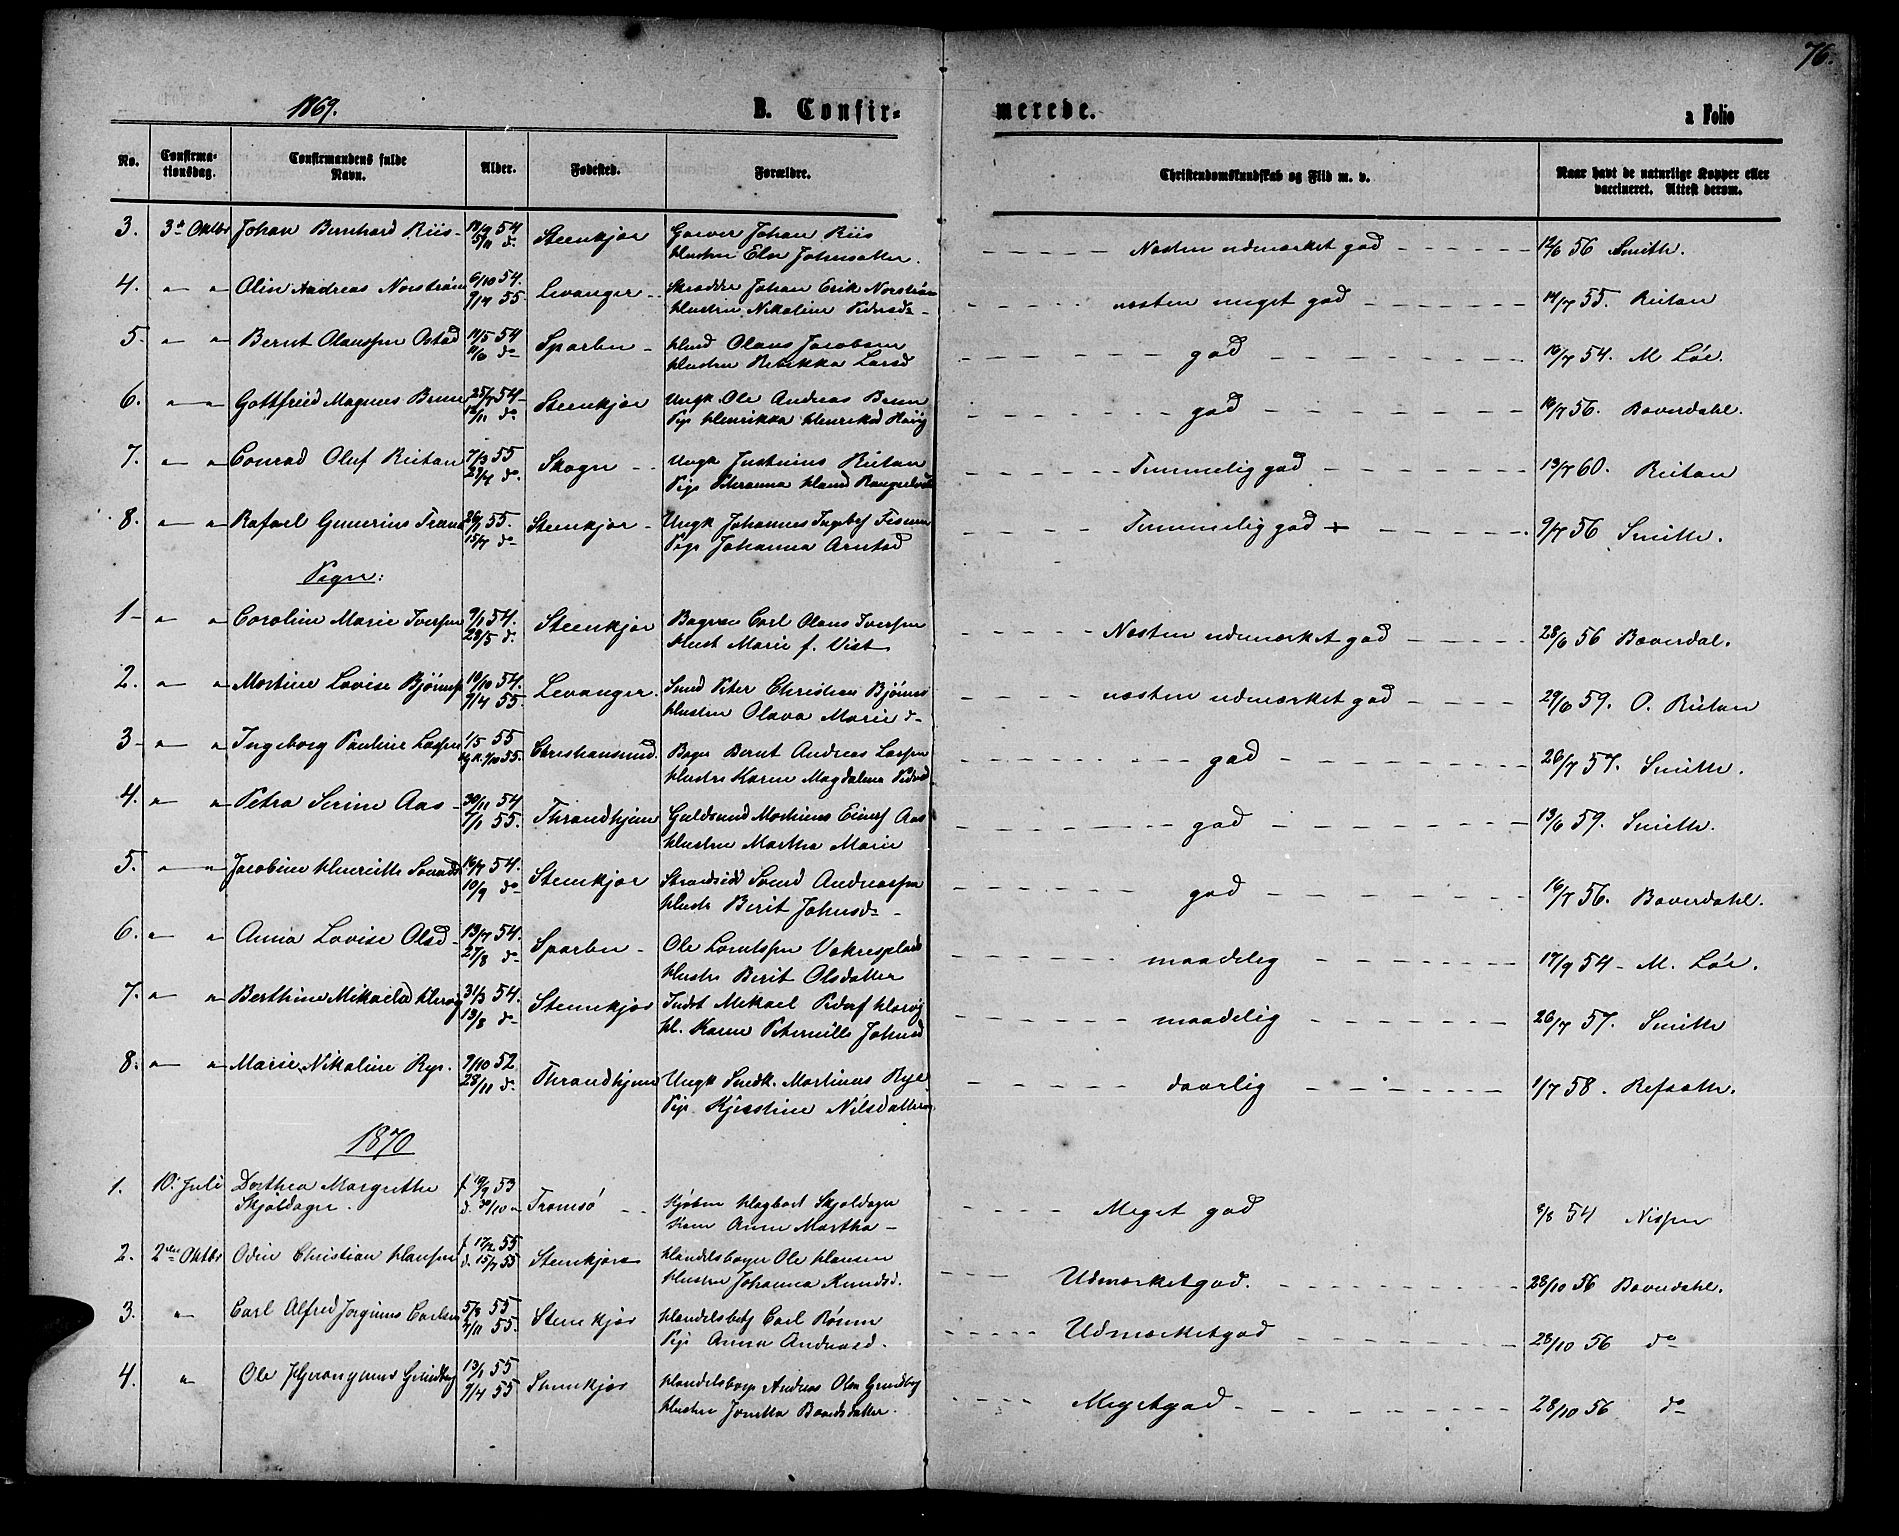 76.
1869.
B. Confirmerede.
a Folio
No. Confirmationsdag. Confirmandens fulde Navn. Alder. Fødested. Forældre. Christendomskundskab og Flid m. v. Naar havt de naturlige Kopper eller vaccineret. Attest derom.
3. 3d Oktbr Johan Bernhard Riis 54 5/11 d. Steenkjær Garver Johan Riis
Hustru Elen Johnsdatter. Næsten udmærket god 12/6 56 Smith.
4. " " Olin Andreas Norstrøm 6/10 54. 9/4 55 Levanger Skrædder Johan Erik Norstrøm
Hustru Nikoline Pedersd. næsten meget god 14/7 55. Reitan
5. " " Bernt Olaussen Østad 11/5 54 11/6 do Sparbu Husd Olaus Jacobsen
Hustru Rebekka Larsd god 16/7 54. M Løe.
6. " " Gottfried Magnus Benn 25/7 54 12/11 do Steenkjær Ungk. Ole Andreas Benn
Pige Henrikka Henriksd god 16/7 56. Baverdahl.
7. " " Conrad Oluf Reitan 7/3 55 29/4 do. Skogn Ungk Justinus Reitan
Pige Petranna Timmelig god 13/7 60. Reitan
8. " " Rafael Gunerius 26/1 55. 15/7 do Steenkjær Ungk Johannes
Pige Johanna Arntsd Timmelig god 9/7 56 Smith.
Piger:
1 " " Caroline Marie Iversen 9/1 54. 28/5 d. Steenkjær Bager Carl Olaus Iversen
Hust Marie f. Vist Næsten udmærket god 28/6 56 Baverdal.
2. " " Martine Lovise Bjørns 10/10 54. 9/4 55. Levanger. Smed Peter Christian Bjørnes
Hustru Olava Marie næsten udmærket god 29/6 59. O. Reitan
3 " " Ingeborg Pauline Larsen 1/5 55 Christiansund. Bager Bernt Andreas Larsen
Hustru Karen Magdalena god 26/7 57. Smith.
4. " " Petra Serine Aas 30/11 54 7/1 55. Throndhjem Guldsmed Martinus Aas
Hustru Martha Marie god 13/6 59. Smith.
5. " " Jacobine Henriette 16/7 54. 10/9 do Steenkjær Strandsidd Andreassen
Hustr Berit Johnsd god 16/7 56. Baverdahl.
6. " " Anna Lovise Olsd 13/7 54. 27/8 do Sparbu Ole Lorntsen
Hustru Berit Olsdatter maadelig 17/9 54 M. Løe.
7. " " Berthine Mikaelsd 31/3 54. 13/8 do Steenkjær Indst Mikael
H. Karen Peternille Johnsd maadelig 26/7 57. Smith
8. " " Marie Nikoline Rye. 9/10 52 28/11 d. Throndhjem Ungk Smedk. Martinus Rye
Pige Kjerstine Nilsdatter daarlig 1/7 58. Refsath.
1870
1. 10. Juli Dorthea Margrethe
Skjoldager. f 19/9 53 d. 30/10 Tromsø Kjøbm Hagbart Skjoldager
Kone Anne Martha Meget god 8/8 54 Nissen
2. 2den Oktbr Odin Christian Hansen f. 17/2 55 d. 15/7 55 Steenkjær Handelsborger Ole Hansen
Hustru Johanna Knudsd. Udmærket god. 28/10 56 Baverdahl.
3. " Carl Alfred Jørginus Carlsen 5/8 55 4/11 55. Steenkjær Handelsbetj Carl Rønne
Pige Anna Andreasd. Udmærket god 28/10 56 do
4. " Ole Hieronymus Grindberg 13/1 55 9/4 55 Steenkjær Handelsborg Andreas Olsen Grindberg
Hustru Jonetta Baardsdatter. Meget god 28/10 56 do